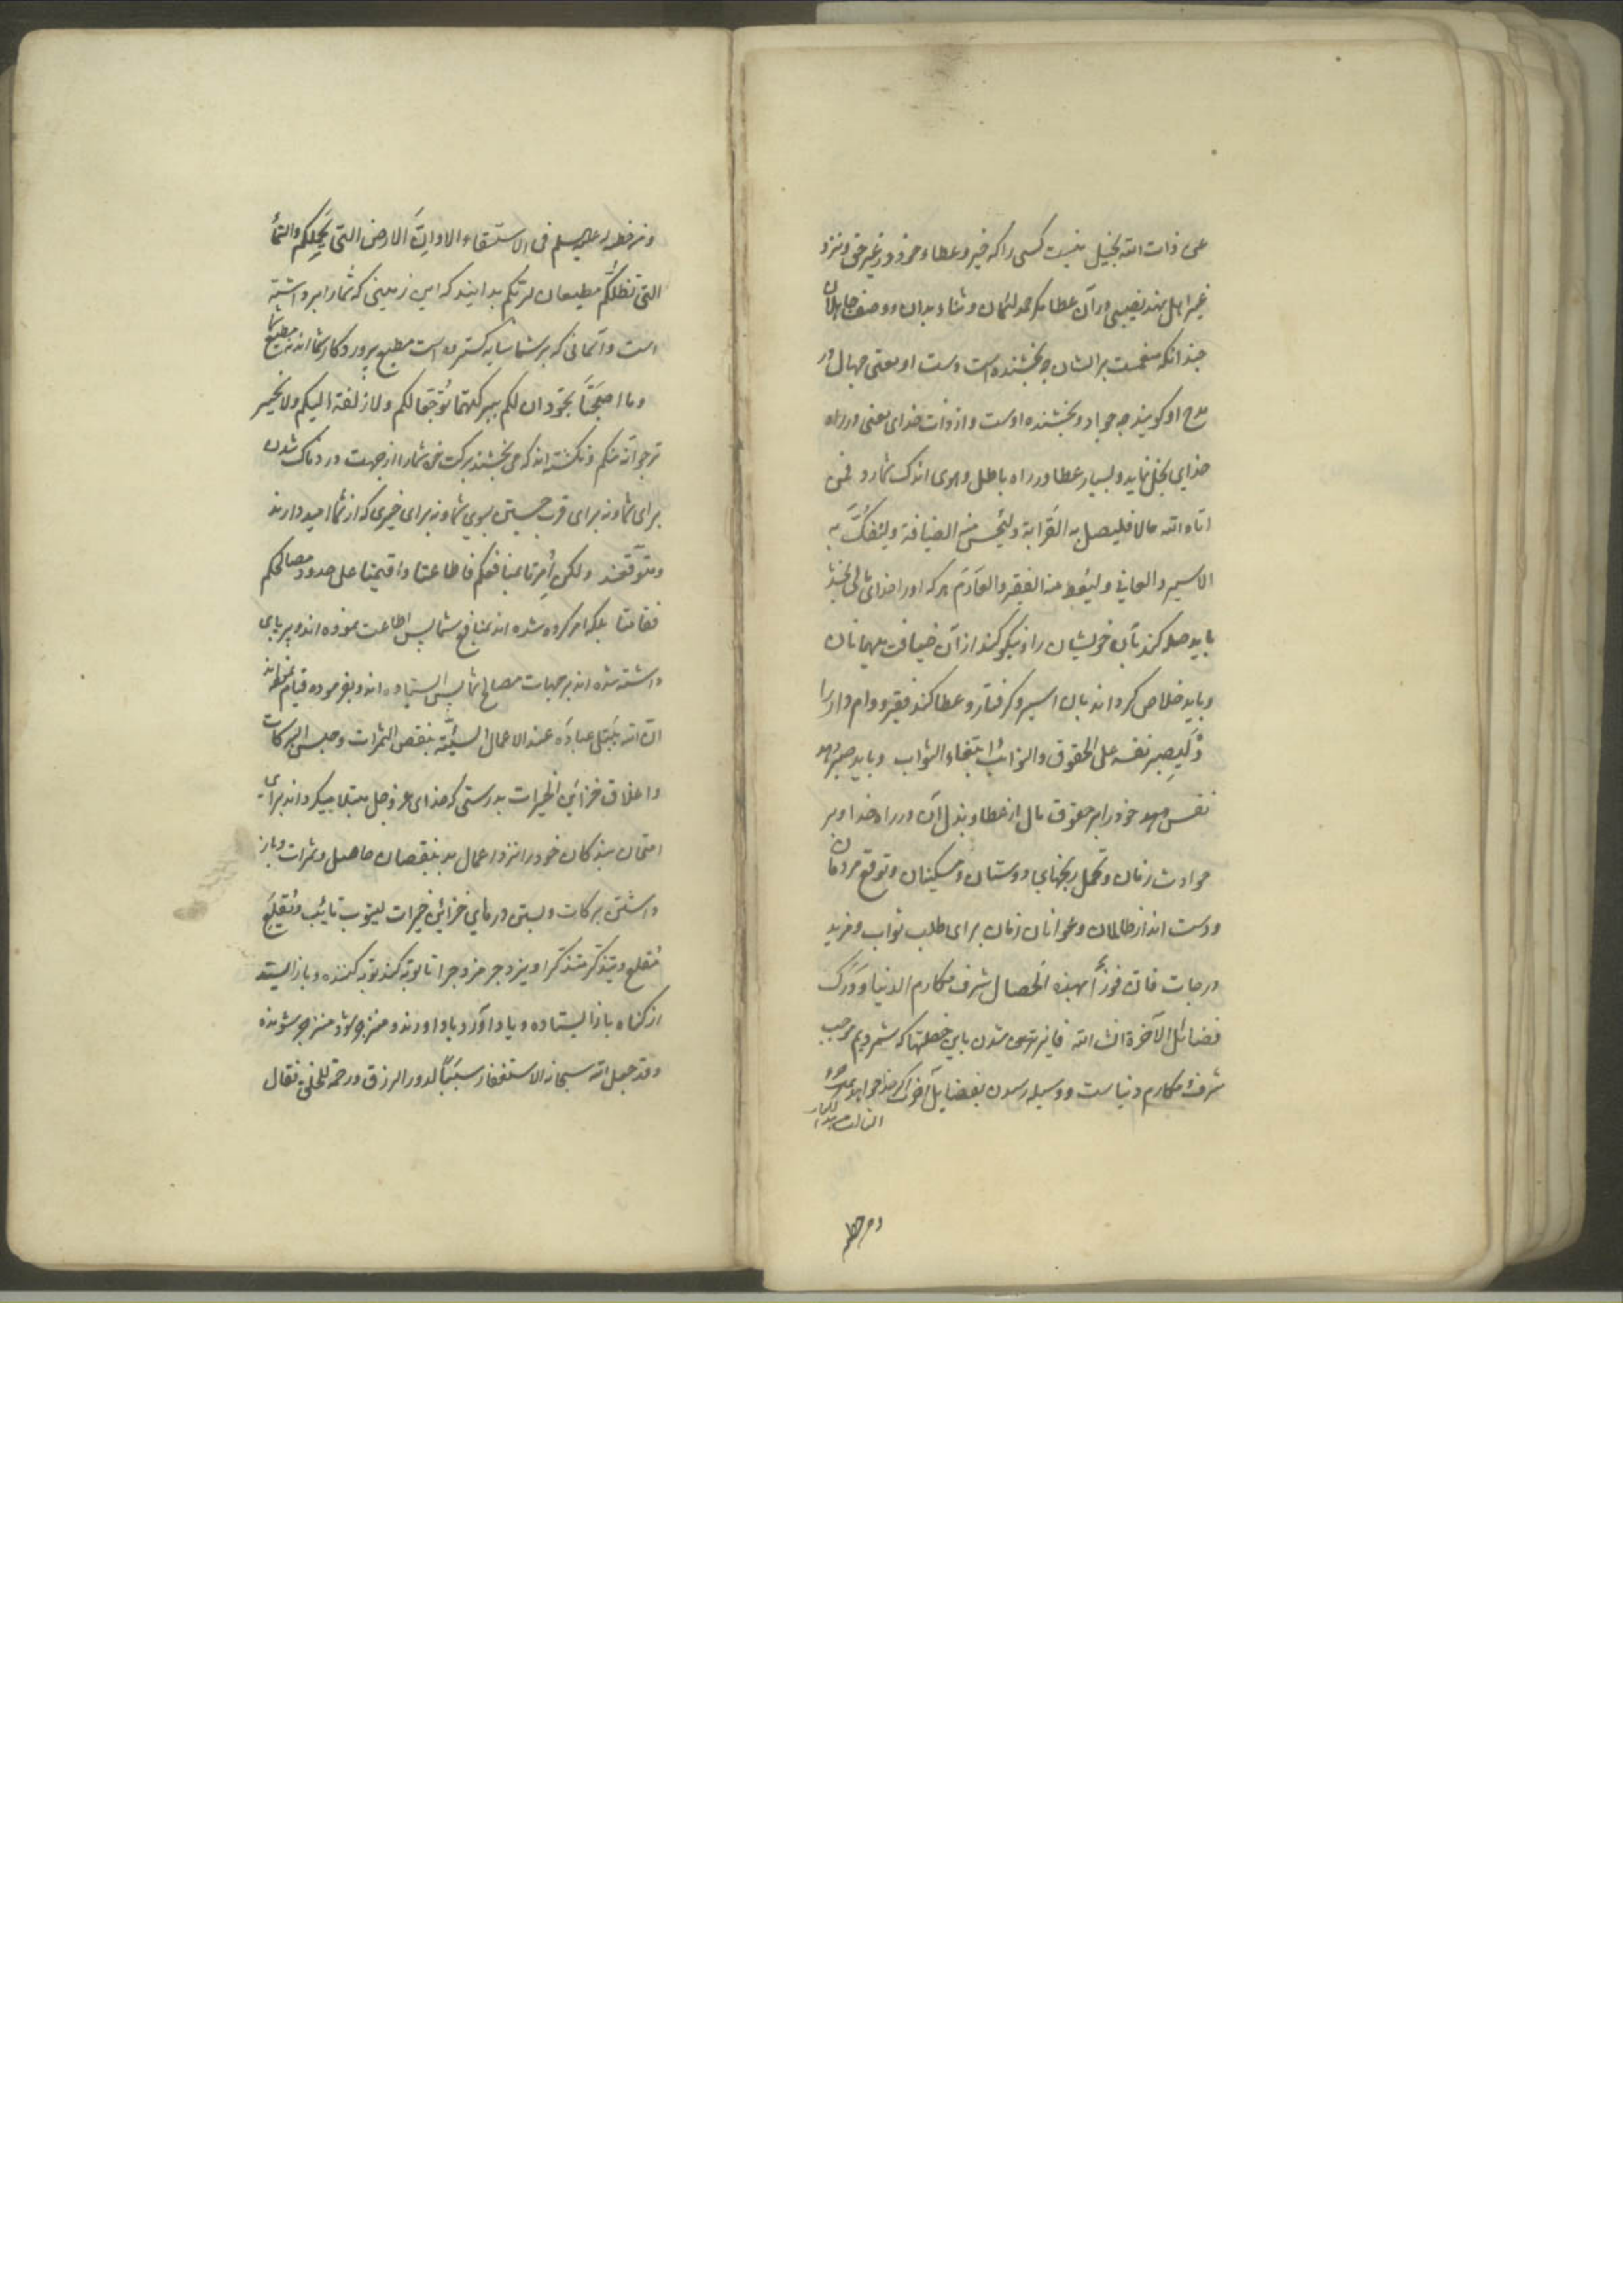 عن ذات الله بخیل نیست کسی را که خیر و عطاء خود در غیر حق و نزد
غیر اهل نهد نصیبی در آن عطا مکر حمد لئیمان و ثناء بدان و وصف جاهلان
چندانکه منعمست بر ایشان چه بخشنده است دست او یعنی جهال در
مدح او کویند چه جواد و بخشنده اوست و از ذات خدای یعنی در راه
خدای بخل نماید و بسیار عطا در راه باطل و هوی اندک شمارد فمن
اتاه الله مالا فلیصل به القرابة ولیحسن منه الضیافة ولیفک به
الاسیر والعانی ولیعط منه الفقیر والغارم هر که او را خدای مالی بخشد
باید صله کند بآن خویشان را و نیکو کند از آن ضیافت مهمانان
و باید خلاص کرداند بآن اسیر و کرفتار و عطا کند فقیر و وام دار را
ولیصبر نفسه علی الحقوق والنوائب ابتغاء الثواب و باید صبر دهد
نفس خود را بر حقوق مال از عطا و بذل آن در راه خدا و بر
حوادث زمان و تحمل رنجهای دوستان و مسکینان و توقع مردمان
و دست انداز ظالمان و عوانان زمان برای طلب ثواب و مزید
درجات فان فوزا بهذه الخصال شرف مکارم الدنیا ودرک
فضائل الآخرة انشاء الله فایز شدن باین خصلتها که شمردیم موجب
شرف مکارم دنیاست و وسیله رسیدن بفضایل آخرت اگر خدا خواهد
ومن خطبة
ومن خطبة له علیه السلم فی الاستسقاء الا وان الارض التی تحملکم والسماء
التی تظلکم مطیعتان لربکم بدانید که این زمینی که شما را برداشته
است و آسمانی که بر شما سایه کسترده است مطیع پروردکار شما اند نه مطیع شما
وما اصبحتا تجودان لکم ببرکتهما توجعا لکم ولا زلفة الیکم ولا لخیر
ترجوانه منکم و نکشته اند که می بخشند برکت خود شما را از جهت دردناک شدن
برای شما و نه برای قرب جستن بسوی شما و نه برای خیری که از شما امید دارند
و متوقعند ولکن امرتا بمنافعکم فاطاعتا واقیمتا علی حدود مصالحکم
فقامتا بلکه امر کرده شده اند بمنافع شما پس اطاعت نموده اند و برپای
داشته شده اند بر جهات مصالح شما پس ایستاده اند و بفرموده قیام نموده اند
ان الله یبتلی عباده عند الاعمال السیئة بنقص الثمرات وحبس البرکات
واغلاق خزائن الخیرات بدرستی که خدای عز و جل مبتلا میکرداند برای
امتحان بندکان خود را نزد اعمال بد بنقصان حاصل و ثمرات و باز
داشتن برکات و بستن درهای خزائن خیرات لیتوب تایب ویقلع
مقلع ویتذکر متذکر ویزدجر مزدجر تا توبه کند توبه کننده و باز ایستد
از کناه باز ایستاده و یاد آورد یاد آورنده و منزجر شود منزجر شونده
وقد جعل الله سبحانه الاستغفار سببا لدرور الرزق ورحمة للخلق فقال